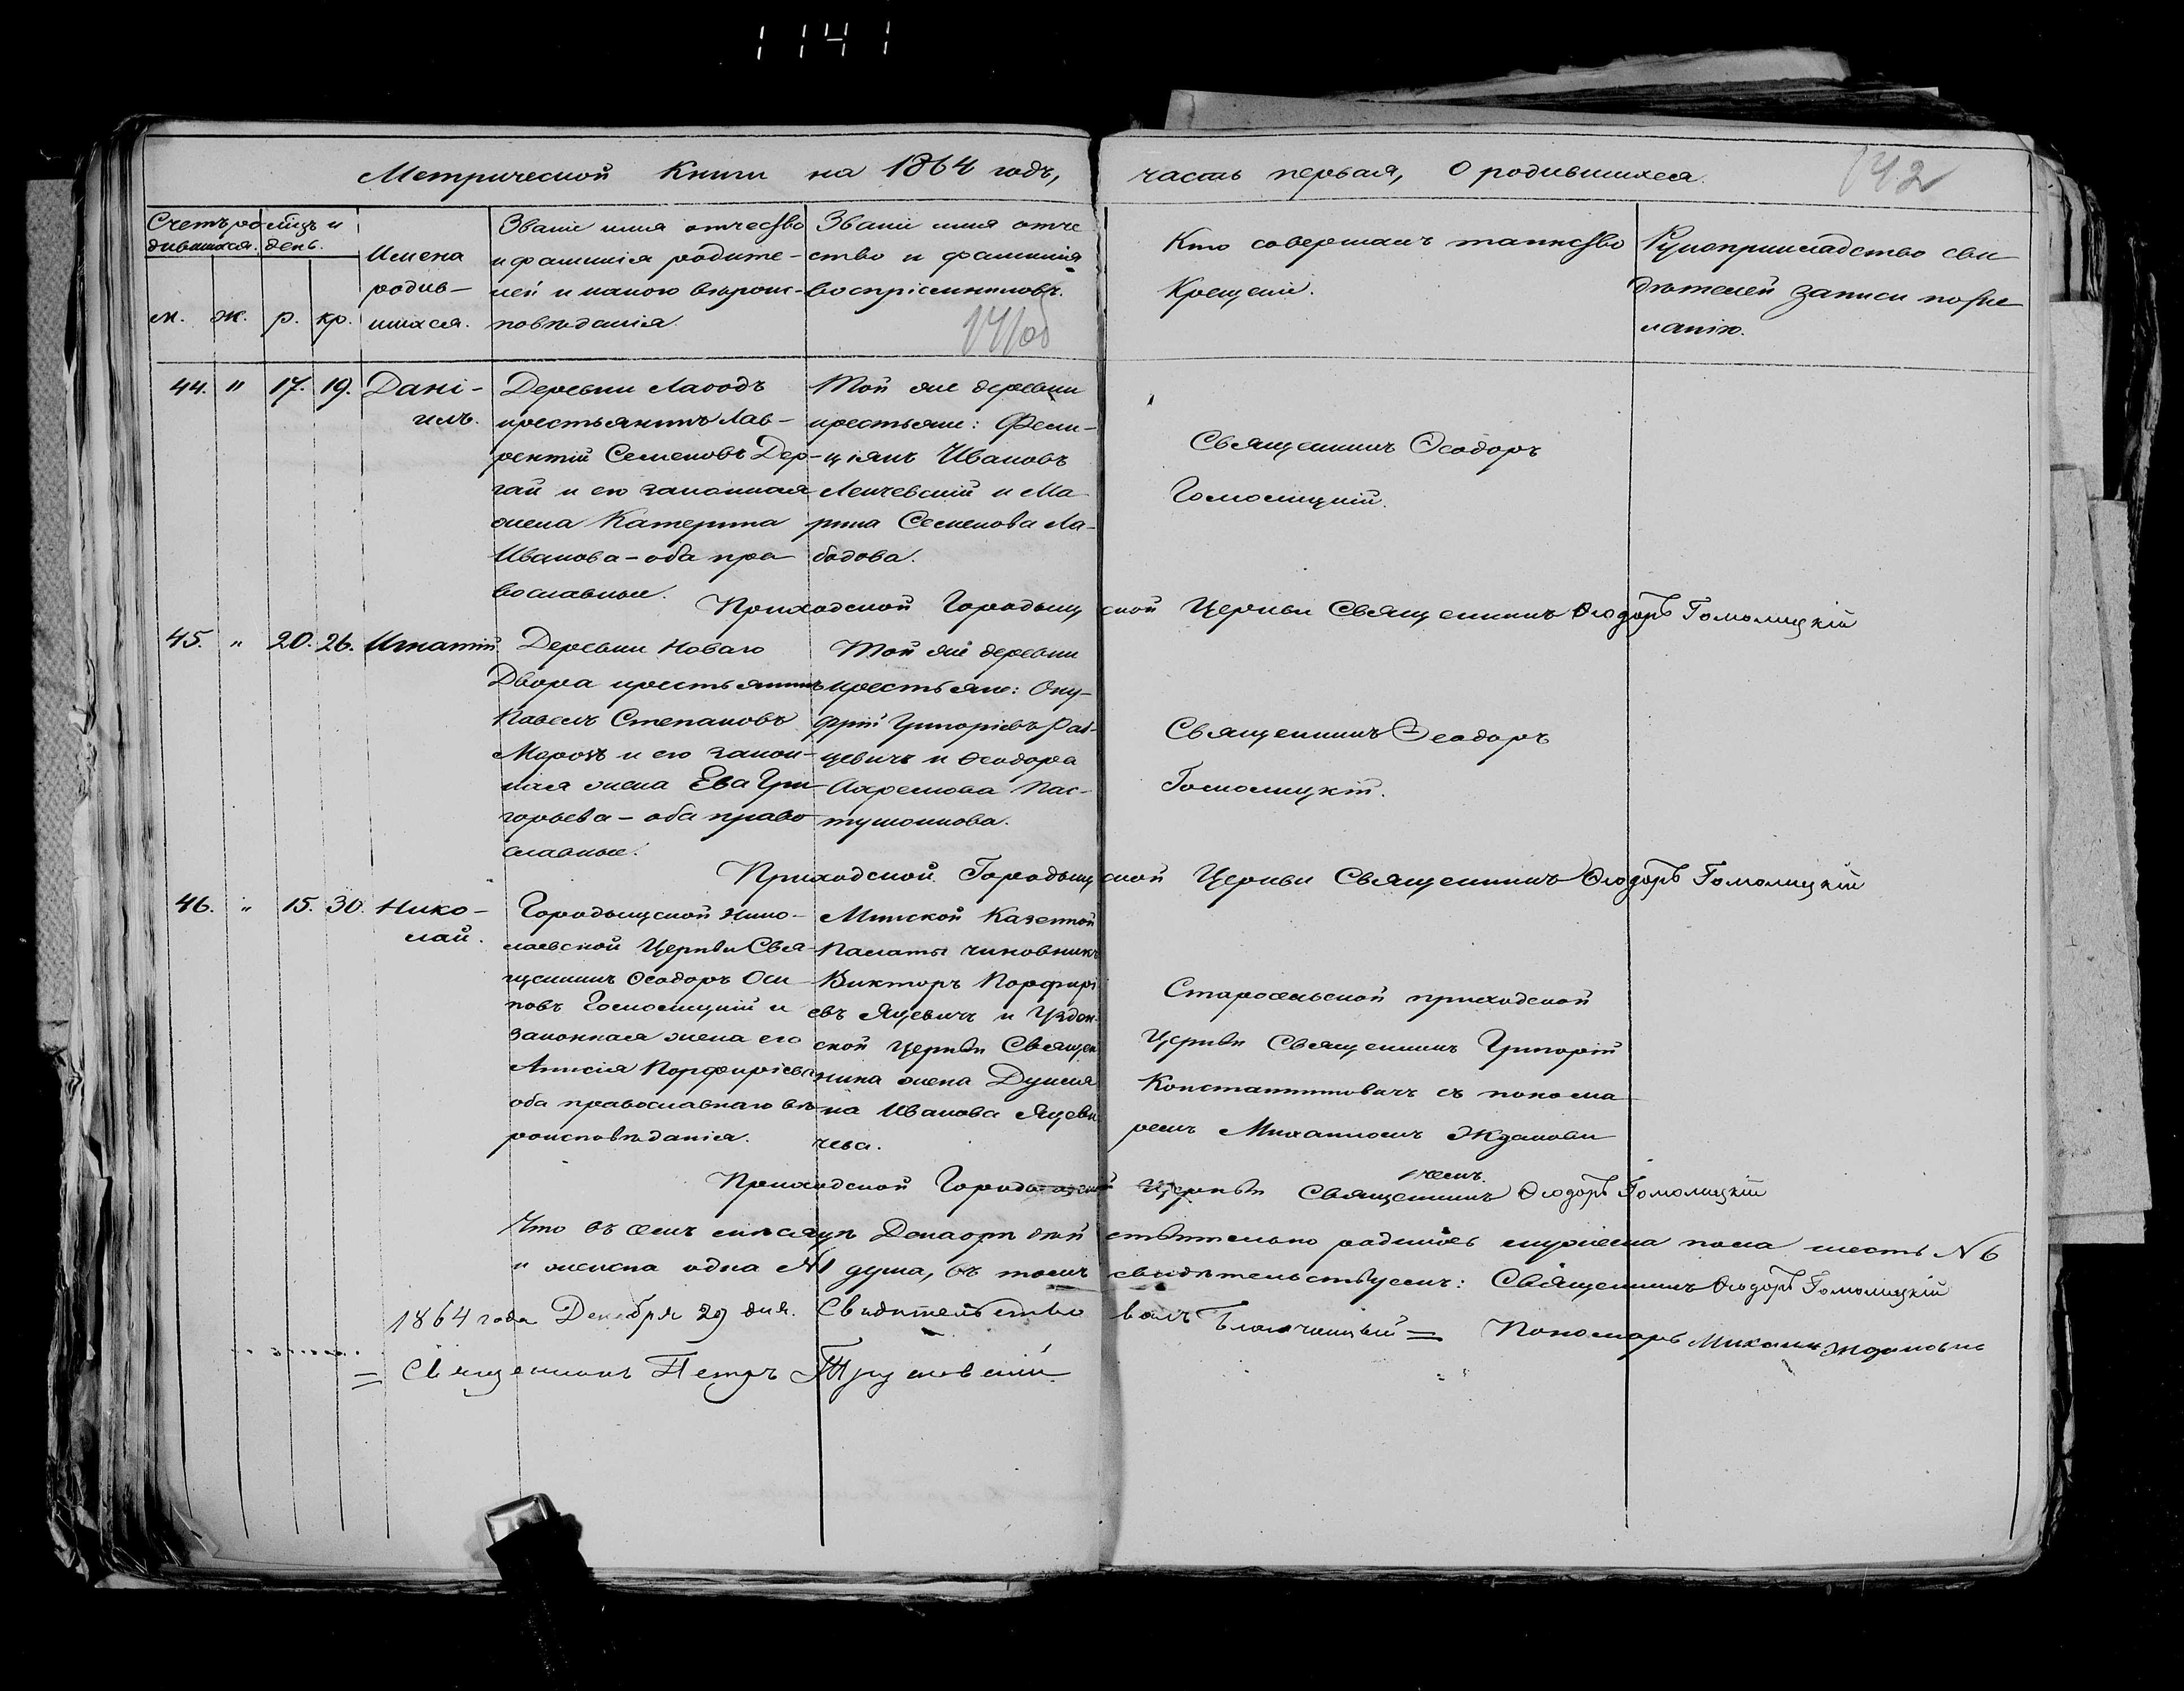 1141
Метрической Книги на 1864 годъ, часть первая, О родившихся.
142
Счетъ ро
дившихся.
м.
ж.
мѣсяцъ и
день.
р.
кр.
Имена
родив-
шихся.
Званіе имя отчество
и фамилія родите-
лей и какого вѣроис-
повѣданія.
Званіе имя отче
ство и фамилія
воспріемниковъ.
141об
Кто совершалъ таинство
Крещенія.
Рукоприкладство сви
дѣтелей записи по же
ланію.
44. " 17. 19.
Дані-
илъ.
Деревни Лабодъ
крестьянинъ Лав-
рентій Семеновъ Дер-
гай и его законная
жена Катерина
Иванова - оба пра
вославные.
Той же деревни
крестьяне: Фели-
ціянъ Ивановъ
и Ма
рина Семенова Ла-
бодова.
Священникъ Ѳеодоръ
Гомолицкій.
Приходской Городыщской Церкви Священникъ Ѳеодоръ Гомолицкій
45. " 20. 26.
Игнатій
Деревни Новаго
Двора крестьянинъ
Павелъ Степановъ
Морозъ и его закон-
ная жена Ева Гри
горьева - оба право
славные.
Той же деревни
крестьяне: Ону-
фрій Григоріевъ Рав-
цевичъ и Ѳеодора
Пас-
тушонкова.
Священникъ Ѳеодоръ
Гомолицкій.
Приходской Городыщской Церкви Священникъ Ѳеодоръ Гомолицкій
46. " 15. 30.
Нико-
лай.
Городыщской Нико-
лаевской Церкви Свя-
щенникъ Ѳеодоръ Оси
повъ Гомолицкій и
законная жена его
Анисія Порфиріева
оба православнаго вѣ
роисповѣданія.
Минской Казенной
Палаты чиновникъ
Викторъ Порфирі
евъ Яцевичъ и Узден-
ской Церкви Священ
ника жена
на Иванова Яцеви
чева.
Старосельской приходской
Церкви Священникъ Григорій
Константиновичъ съ понома
ремъ Михаиломъ Жданови
чемъ.
Приходской Городыщской Церкви Священникъ Ѳеодоръ Гомолицкій
Что въ семъ мѣсяцѣ Декабрѣ дѣйствительно родилось мужеска пола шесть N 6
и женска одна N 1 душа, въ томъ свидѣтельствуемъ: Священникъ Ѳеодоръ Гомолицкій
1864 года Декабря 29 дня. Свидѣтельствовалъ Благочинный = Пономарь Михаилъ Ждановичъ
= Священникъ Петръ